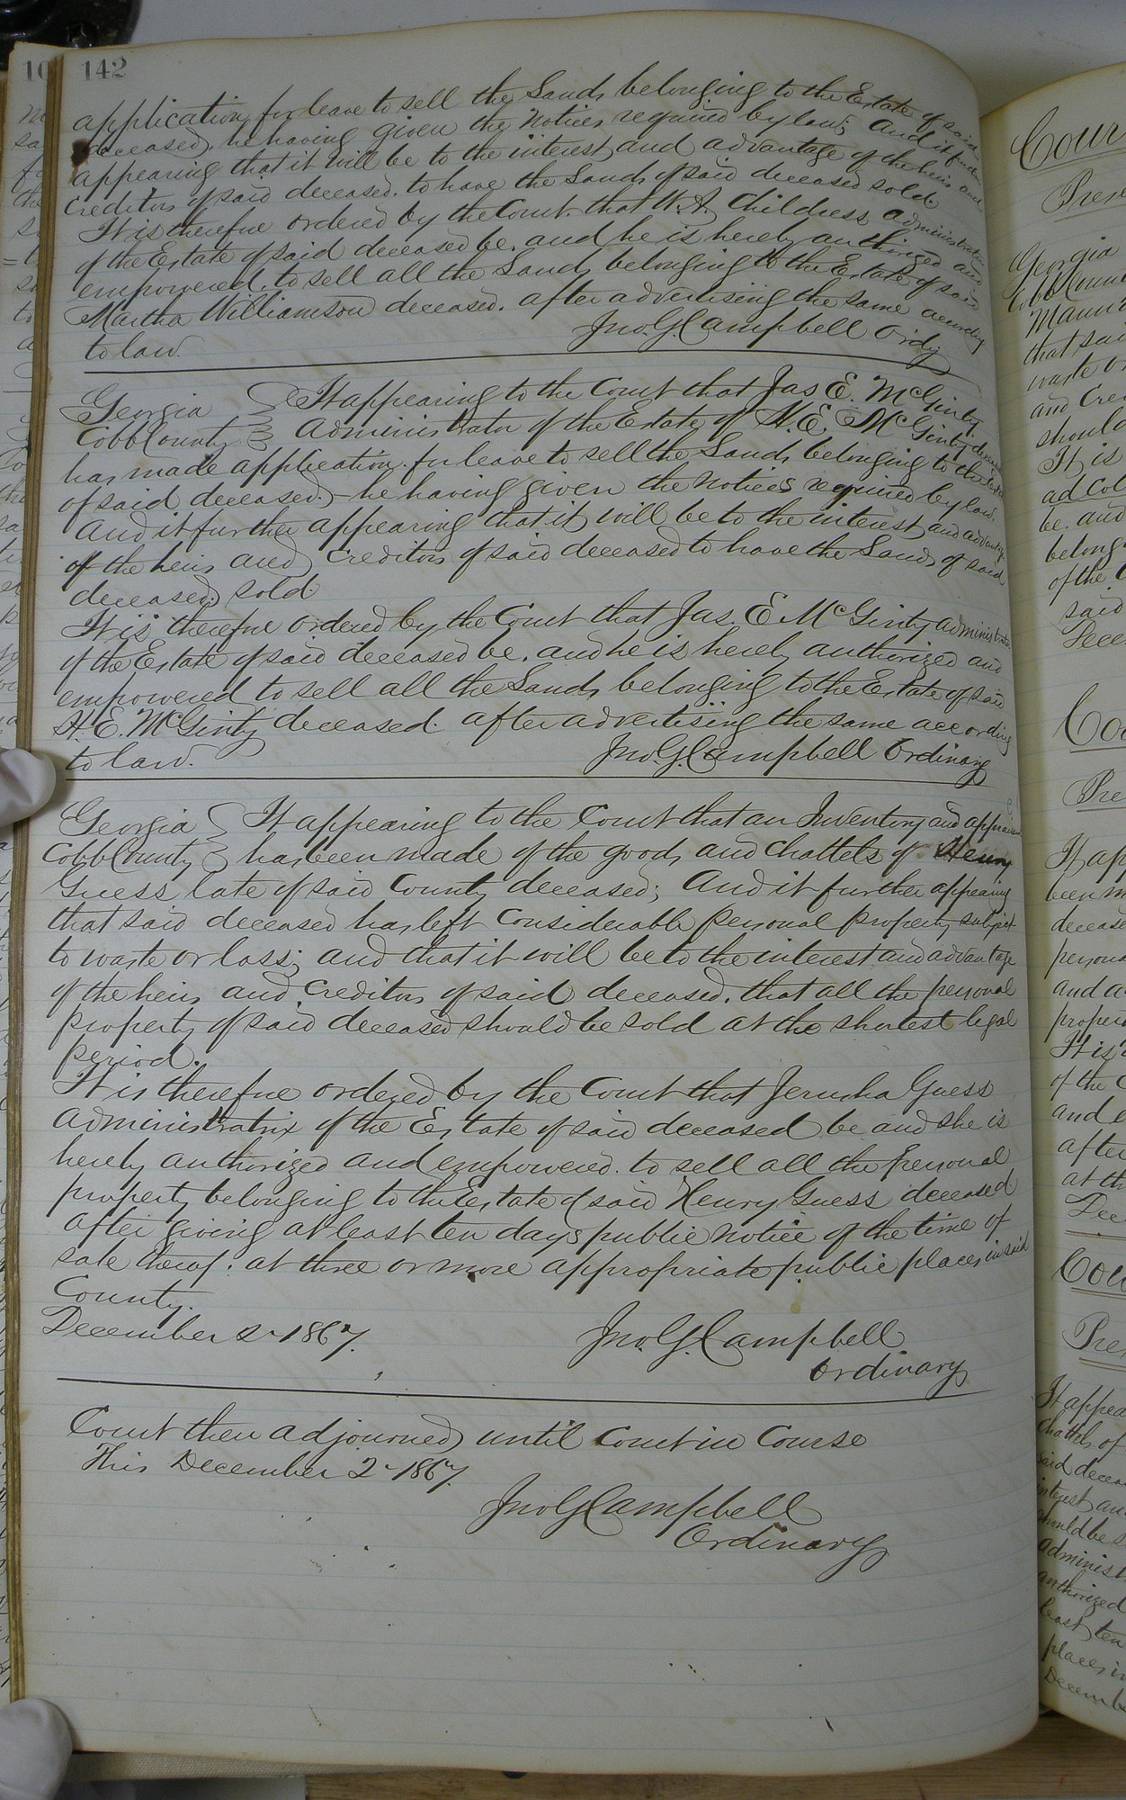 142
application for leave to sell the Lands belonging to the Estate of said
deceased, he having given the notices required by law; And it further
appearing that it will be to the interest and advantage of the heirs and
creditors of said deceased. to have the Lands of said deceased sold
It is therefore ordered by the Court. that W. A. Childress administrator
of the Estate of said deceased be. and he is hereby authorized and
empowered. to sell all the Lands belonging to the Estate of said
Martha Williamson deceased. after advertising the same according
to law. Jno. G. Campbell Ordy
Georgia It appearing to the Court that Jas E. McGinty
Cobb County Administrator of the Estate of H. E. McGinty deceased
has made application for leave to sell the Lands belonging to the Estate
of said deceased. he having given the notices required by law.
And it further appearing that it will be to the interest and advantage
of the heirs and creditors of said deceased to have the Lands of said
deceased sold
It is therefore ordered by the Court that Jas. E McGinty administrator
of the Estate of said deceased be. and he is hereby authorized and
empowered to sell all the Lands belonging to the Estate of said
H. E. McGinty deceased. after advertising the same according
to law. Jno. G. Campbell Ordinary
Georgia It appearing to the Court that an Inventory and appraisment
Cobb County has been made of the goods and Chattels of Henry
Guess late of said County deceased; And it further appearing
that said deceased has left Considerable personal property subject
to waste or loss; and that it will be to the interest and advantage
of the heirs and Creditors of said deceased. that all the personal
property of said deceased should be sold at the shortest legal
period.
It is therefore ordered by the Court that Jerusha Guess
Administratrix of the Estate of said deceased be and she is
hereby authorized and empowered. to sell all the personal
property belonging to the Estate of said Henry Guess deceased
after giving at least ten days public notice of the time of
sale thereof. at three or more appropriate public places in said
County.
December 2 1867. Jno. G. Campbell
Ordinary
Court then adjourned until Court in Course
This December 2 1867.
Jno G Campbell
Ordinary